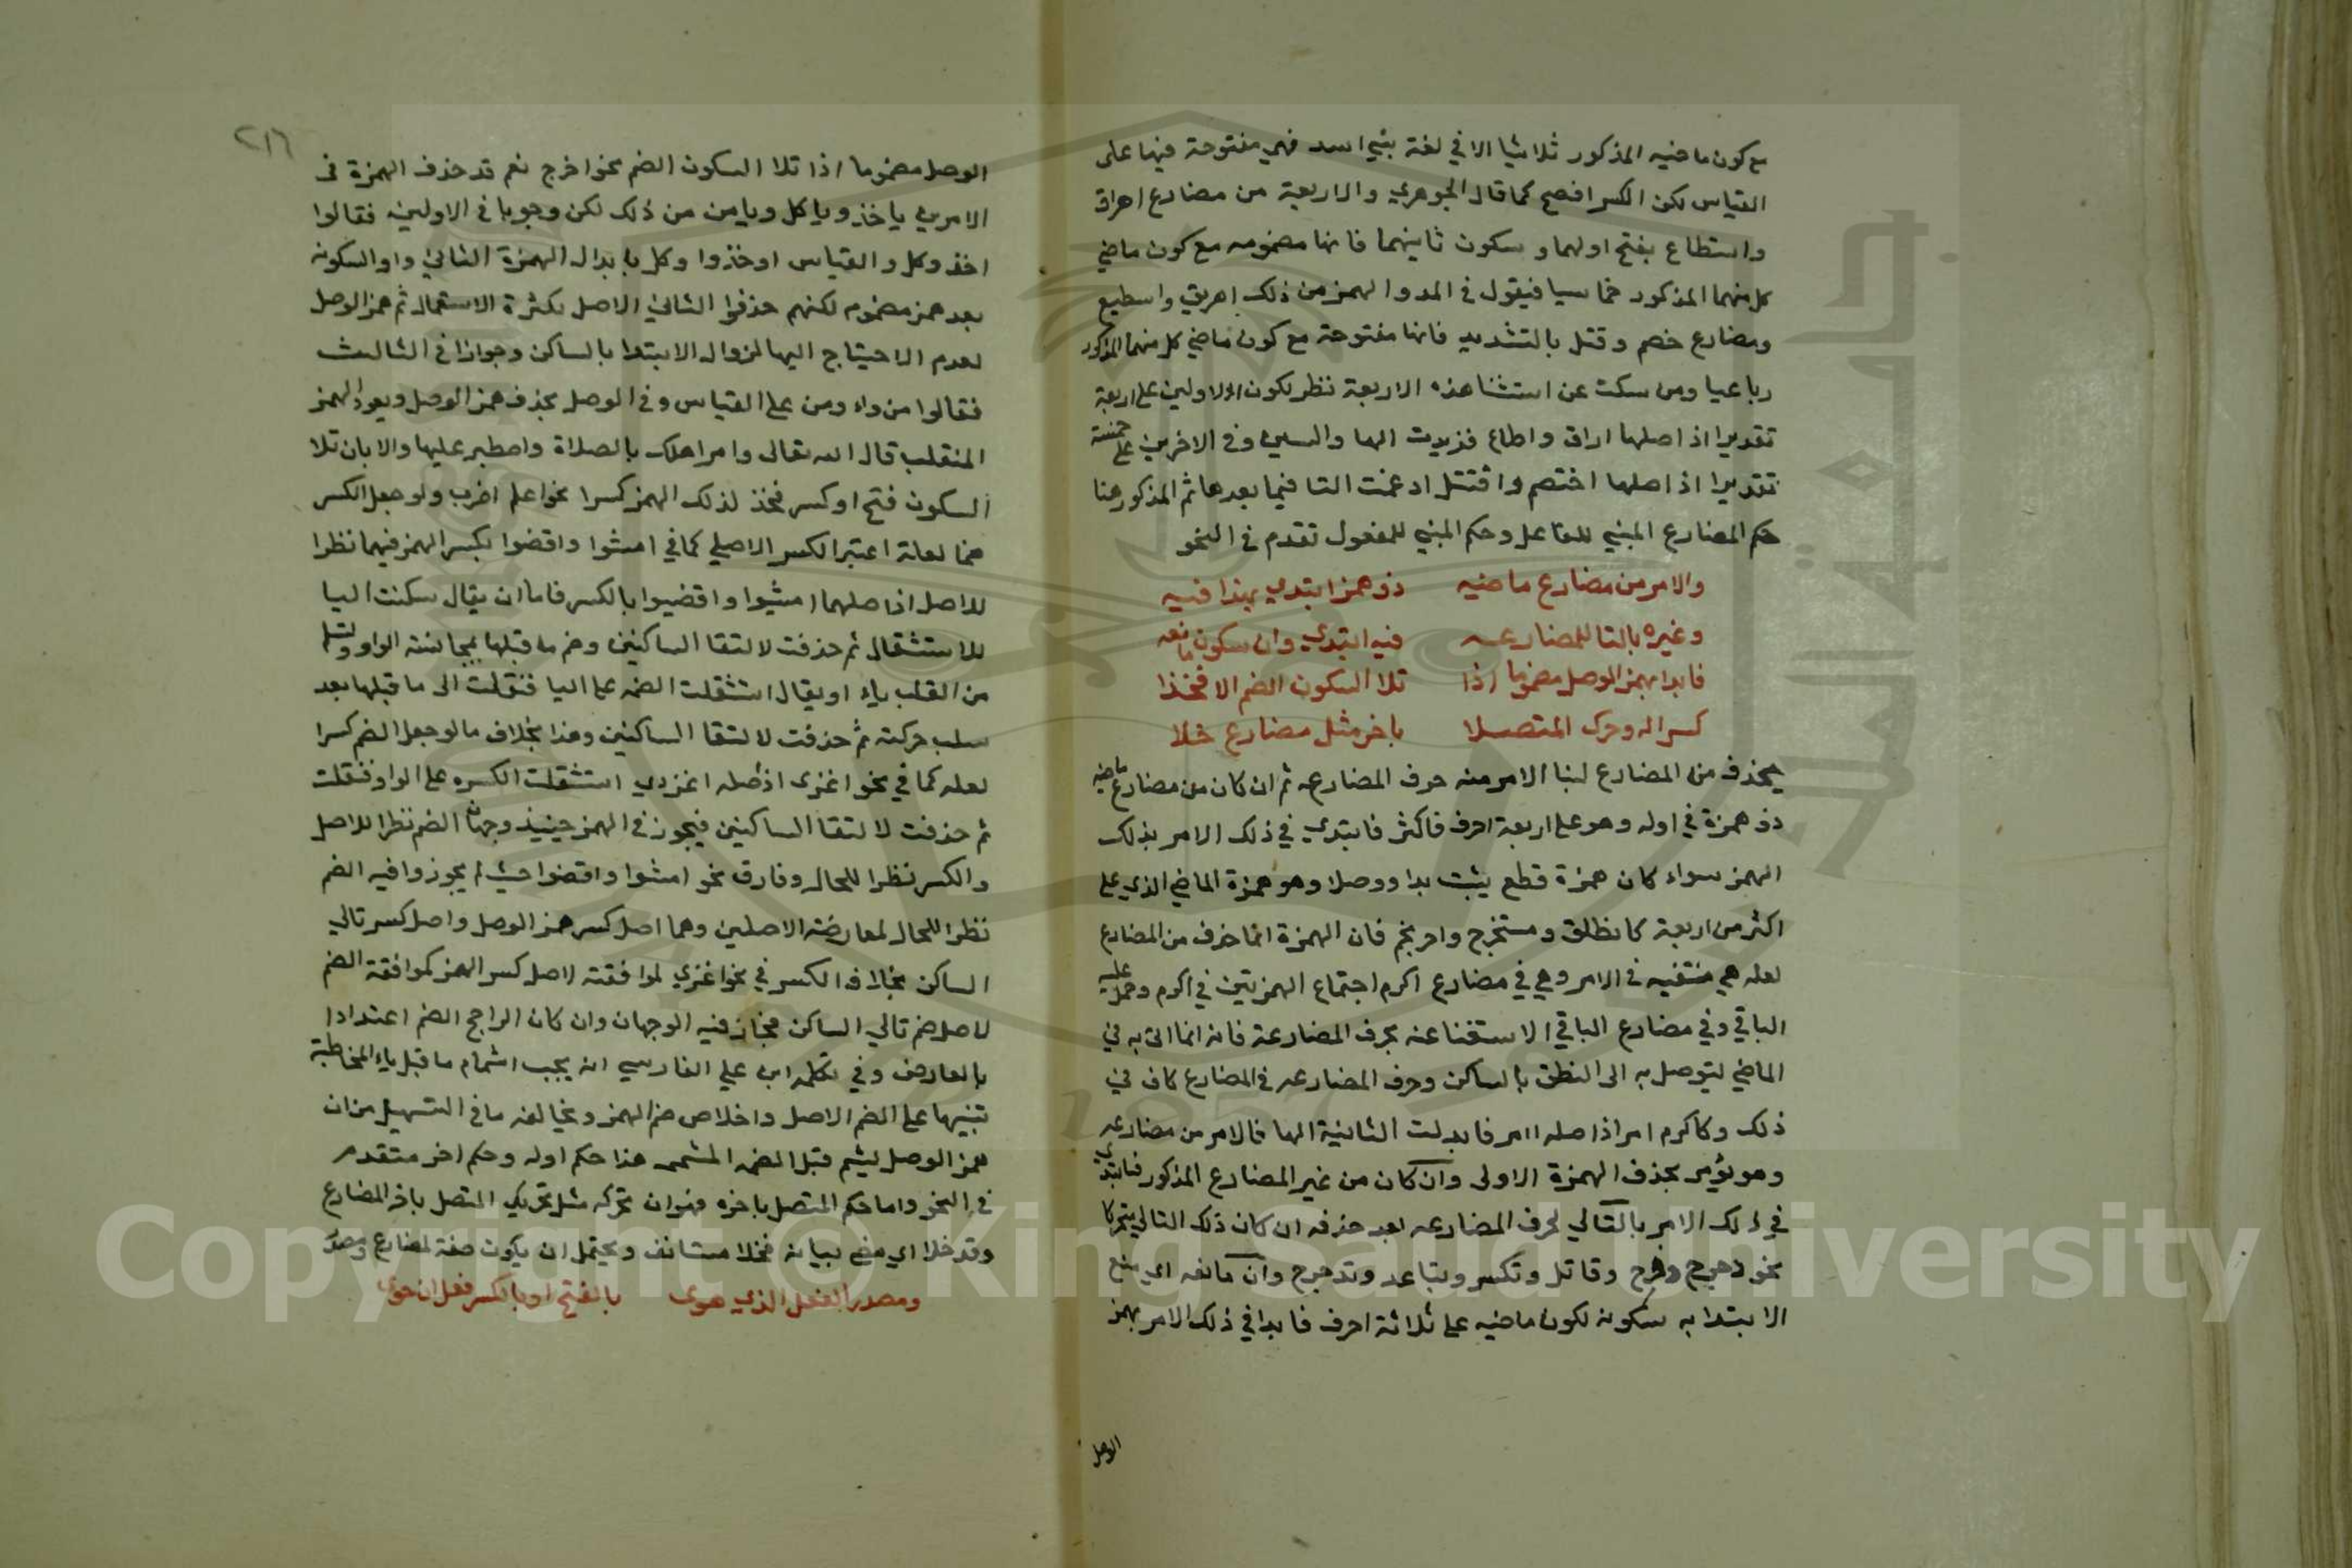 مع كون ماضيه المذكور ثلاثيا الا في لغة بني اسد فهي مفتوحة فيها على
القياس لكن الكسر افصح كما قال الجوهري والاربعة من مضارع اهراق
واسطاع بفتح اولهما وسكون ثانيهما فانها مضمومه مع كون ماضي
كل منهما المذكور خماسيا فيقول في المد والهمز من ذلك اهريق واسطيع
ومضارع خصم وقتل بالتشديد فانها مفتوحة مع كون ماضي كل منهما المذكور
رباعيا ومن سكت عن استثنا هذه الاربعة نظر لكون الاولين على اربعة
تقديرا اذ اصلها اراق واطاع فزيدت الها والسين وفي الاخرين على خمسة
تقديرا اذ اصلها اختصم واقتتل ادغمت التا فيما بعدها ثم المذكور هنا
حكم المضارع المبني للفاعل وحكم المبني للمفعول تقدم في النحو
والامر من مضارع ماضيه ذو همز ابتدي بهذا فيه
وغيره بالتا للمضارعه فيه ابتدي وان سكون مانعه
فابدا بهمز الوصل مضموما اذا تلا السكون الضم الا فخذا
كسرا له وحرك المتصلا باخر مثل مضارع خلا
يحذف من المضارع لبنا الامر منه حرف المضارعه ثم ان كان من مضارع ماضيه
ذو همزة في اوله وهو على اربعة احرف فاكثر فابتدي في ذلك الامر بذلك
الهمز سواء كان همزة قطع يثبت بدا ووصلا وهو همزة الماضي الذي على
اكثر من اربعة كانطلق ومستخرج واحرنجم فان الهمزة انما حذف من المضارع
لعله هي منتفيه في الامر وهي في مضارع اكرم اجتماع الهمزتين في اكرم وحمل عليه
الباقي وفي مضارع الباقي الاستغنا عنه بحرف المضارعة فانه انما اتى به في
الماضي ليتوصل به الى النطق بالساكن وحرف المضارعه في المضارع كاف في
ذلك وكاكرم امر اذ اصله اامر فابدلت الثانية الها فالامر من مضارعه
وهو يؤمر بحذف الهمزة الاولى وان كان من غير المضارع المذكور فابتدي
في ذلك الامر بالتالي لحرف المضارعه بعد حذفه ان كان ذلك التالي متحركا
نحو دحرج وفرح وقاتل وتكسر وتباعد وتدحرج وان مانعه اي منع
الابتدا به سكونه لكون ماضيه على ثلاثة احرف فابدا في ذلك الامر بهمز
الوصل
٢١٦
الوصل مضموما اذا تلا السكون الضم نحو اخرج نعم قد حذف الهمزة في
الامر من ياخذ وياكل ويامر من ذلك لكن وجوبا في الاولين فقالوا
خذ وكل والقياس اوخذ واوكل بابدال الهمزة الثاني واوا لسكونه
بعد همز مضموم لكنهم حذفوا الثاني الاصل لكثرة الاستعمال ثم همز الوصل
لعدم الاحتياج اليها لزوال الابتدا بالساكن وجوازا في الثالث
فقالوا مر واومر على القياس وفي الوصل بحذف همز الوصل ويعود الهمز
المنقلب قال الله تعالى وامر اهلك بالصلاة واصطبر عليها والا بان تلا
السكون فتح او كسر فخذ لذلك الهمز كسرا نحو اعلم اضرب ولو جعل الكسر
ضما لعلة اعتبر الكسر الاصلي كما في امشوا واقضوا بكسر الهمز فيهما نظرا
للاصل اذ اصلهما امشيوا واقضيوا بالكسر فاما ان يقال سكنت اليا
للاستثقال ثم حذفت لالتقا الساكنين وضم ما قبلها لمجانسة الواو ولتسلم
من القلب ياء او يقال استثقلت الضمه على اليا فنقلت الى ما قبلها بعد
سلب حركته ثم حذفت لالتقا الساكنين وهذا بخلاف ما لو جعل الضم كسرا
لعله كما في نحو اغزي اذ اصله اغزوي استثقلت الكسره على الواو فنقلت
ثم حذفت لالتقا الساكنين فيجوز في الهمز حينيذ وجهان الضم نظرا للاصل
والكسر نظرا للحال وفارق نحو امشوا واقضوا حيث لم يجوزوا فيه الضم
نظرا للحال لمعارضة الاصلين وهما اصل كسر همز الوصل واصل كسر تالي
الساكن بخلاف الكسر في نحو اغزي لموافقته لاصل كسر الهمز كموافقة الضم
لاصل ضم تالي الساكن فجاز فيه الوجهان وان كان الراجح الضم اعتدادا
بالعارض وفي تكملة ابي علي الفارسي انه يجب اشمام ما قبل ياء المخاطبة
تنبيها على الضم الاصل واخلاص ضم الهمز ويخالفه ما في التسهيل من ان
همز الوصل يشم قبل الضمه المشمه هذا حكم اوله وحكم اخر متقدم
في النحو واما حكم المتصل باخره فهو ان تحركه مثل تحريك المتصل باخر المضارع
وقد خلا اي مضى بيانه فخلا مستانف ويحتمل ان يكون صفة لمضارع
ومصدر الفعل الذي حوى بالفتح او بالكسر فعل ان حوى
Copyright © King Saud University
1957